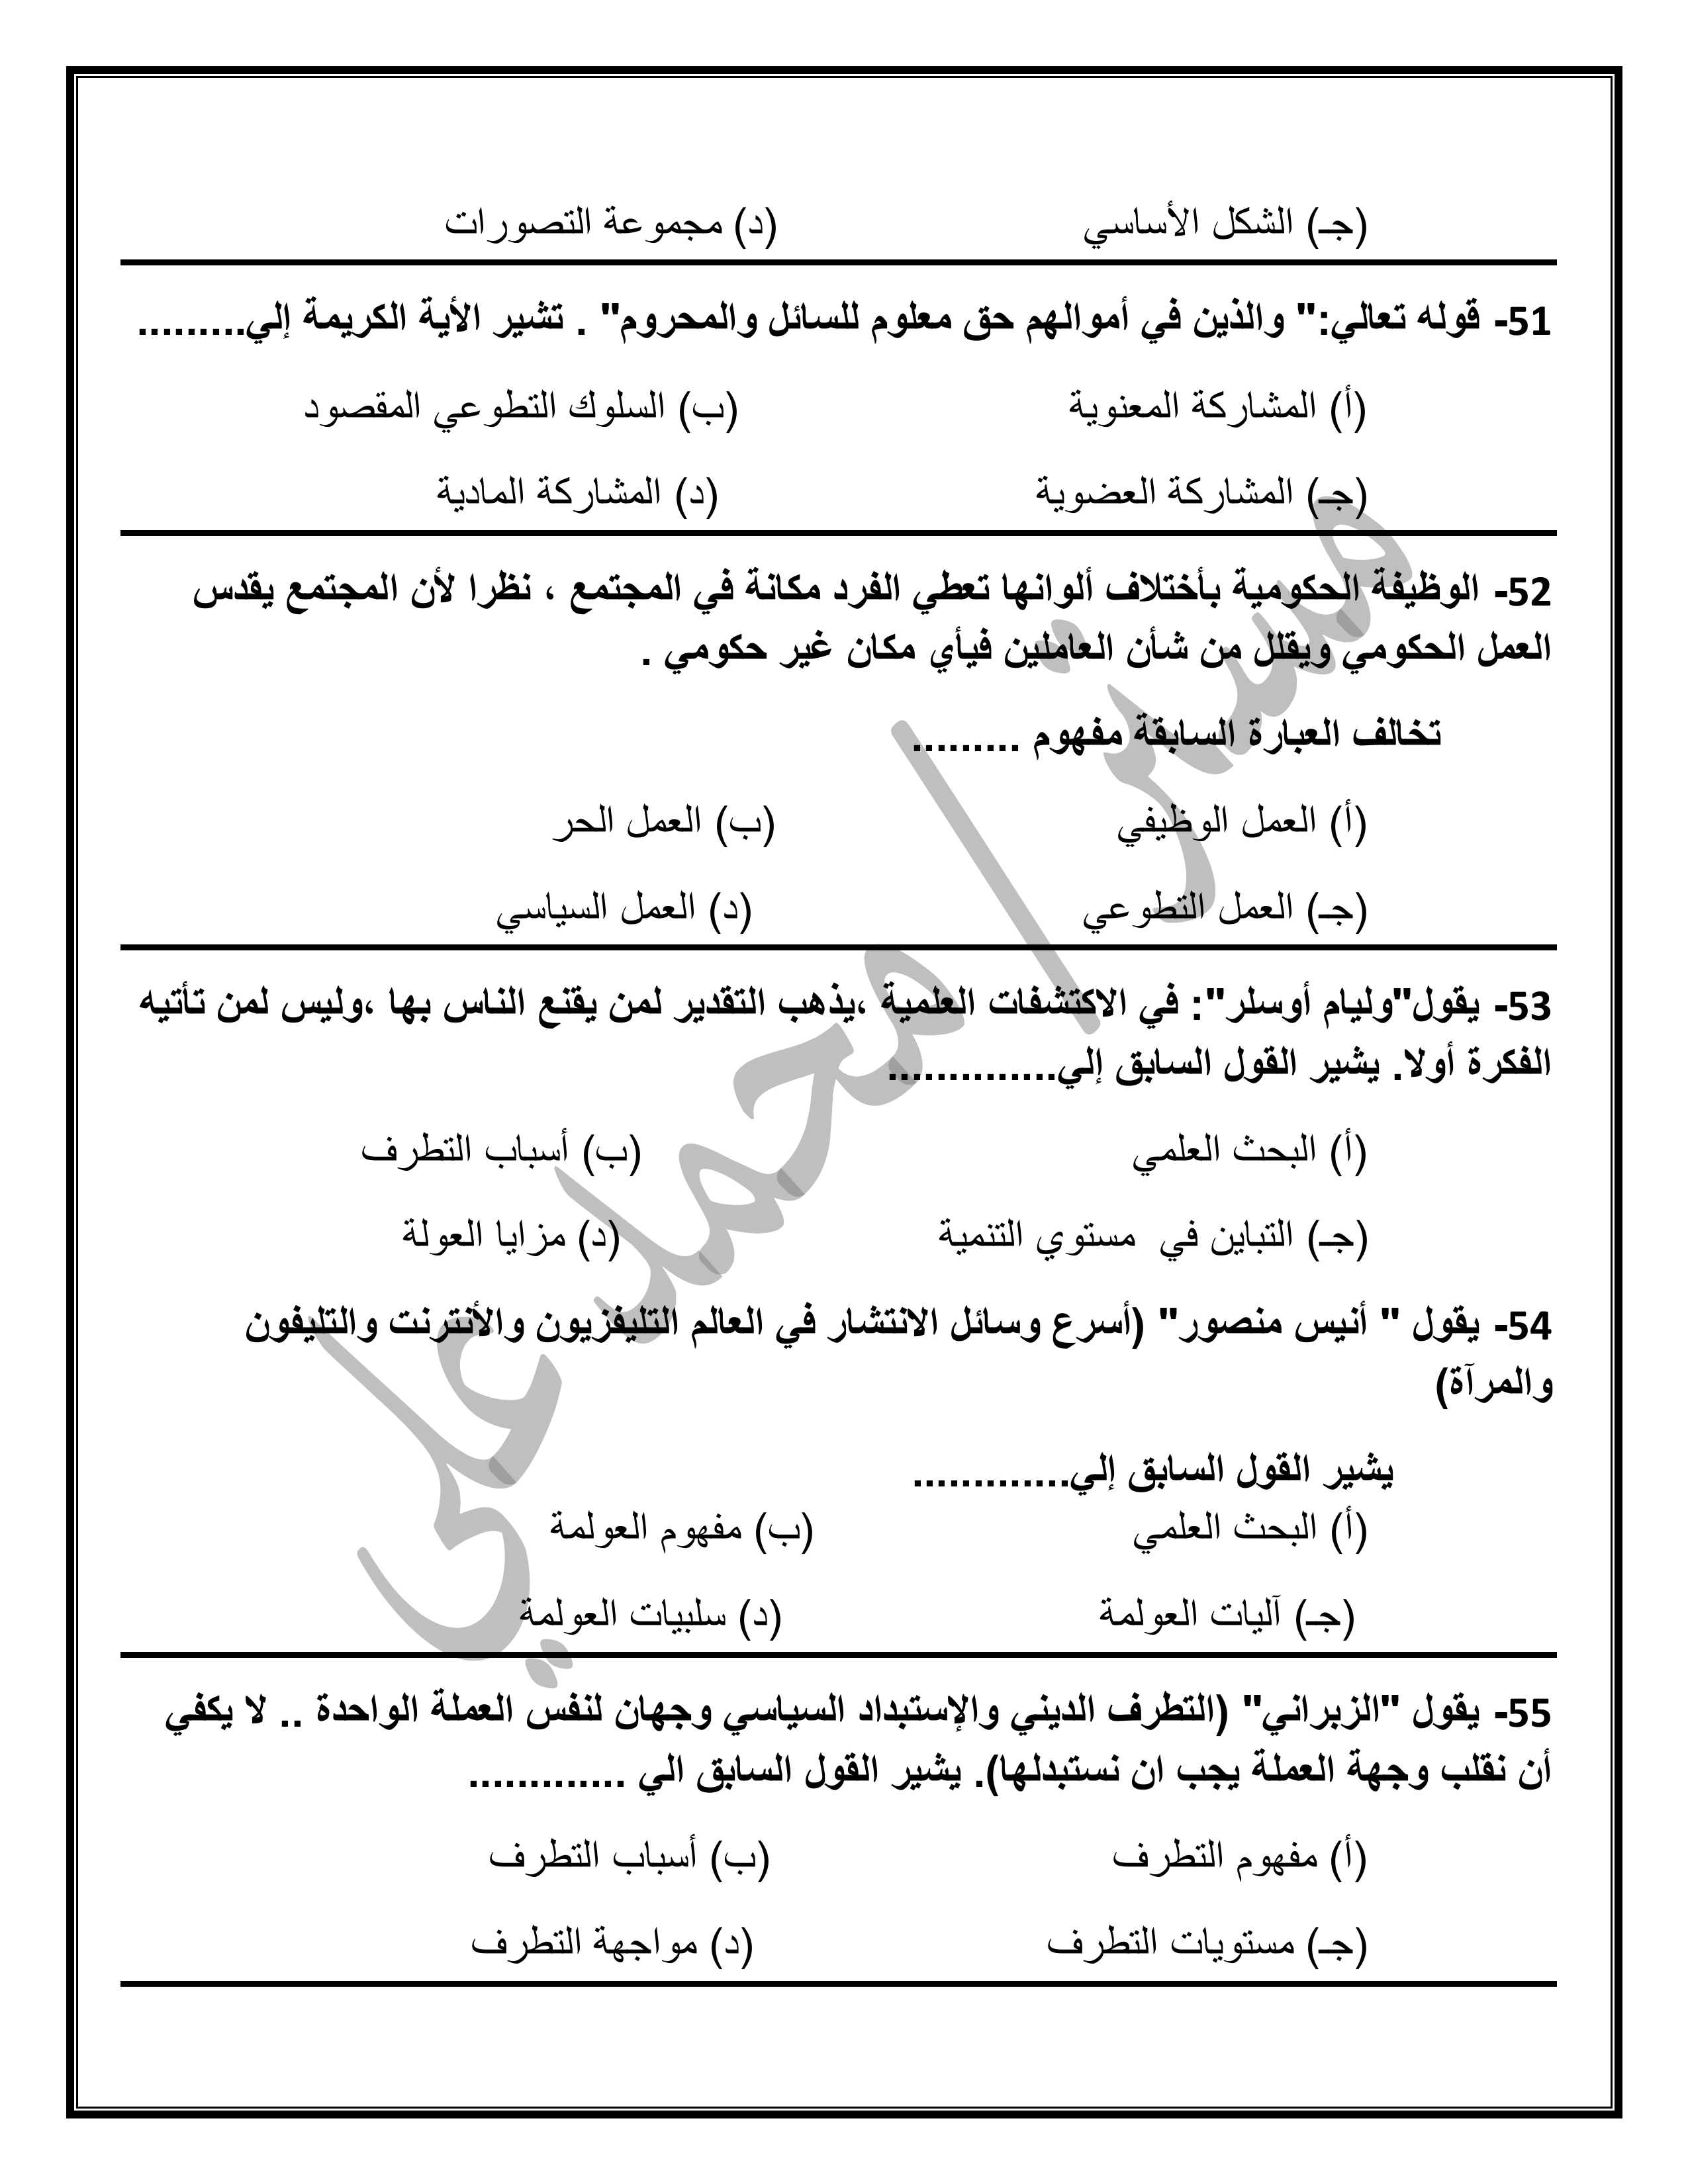 (جـ) الشكل الأساسي (د) مجموعة التصورات
51- قوله تعالي:" والذين في أموالهم حق معلوم للسائل والمحروم" . تشير الأية الكريمة إلي.........
(أ) المشاركة المعنوية (ب) السلوك التطوعي المقصود
(جـ) المشاركة العضوية (د) المشاركة المادية
52- الوظيفة الحكومية بأختلاف ألوانها تعطي الفرد مكانة في المجتمع ، نظرا لأن المجتمع يقدس
العمل الحكومي ويقلل من شأن العاملين فيأي مكان غير حكومي .
تخالف العبارة السابقة مفهوم .........
(أ) العمل الوظيفي (ب) العمل الحر
(جـ) العمل التطوعي (د) العمل السياسي
53- يقول"وليام أوسلر": في الاكتشفات العلمية ،يذهب التقدير لمن يقنع الناس بها ،وليس لمن تأتيه
الفكرة أولا. يشير القول السابق إلي..............
(أ) البحث العلمي (ب) أسباب التطرف
(جـ) التباين في مستوي التنمية (د) مزايا العولة
54- يقول " أنيس منصور" (أسرع وسائل الانتشار في العالم التليفزيون والأنترنت والتليفون
والمرآة)
يشير القول السابق إلي.............
(أ) البحث العلمي (ب) مفهوم العولمة
(جـ) آليات العولمة (د) سلبيات العولمة
55- يقول "الزبراني" (التطرف الديني والإستبداد السياسي وجهان لنفس العملة الواحدة .. لا يكفي
أن نقلب وجهة العملة يجب ان نستبدلها). يشير القول السابق الي .............
(أ) مفهوم التطرف (ب) أسباب التطرف
(جـ) مستويات التطرف (د) مواجهة التطرف
مستر/محمد علي